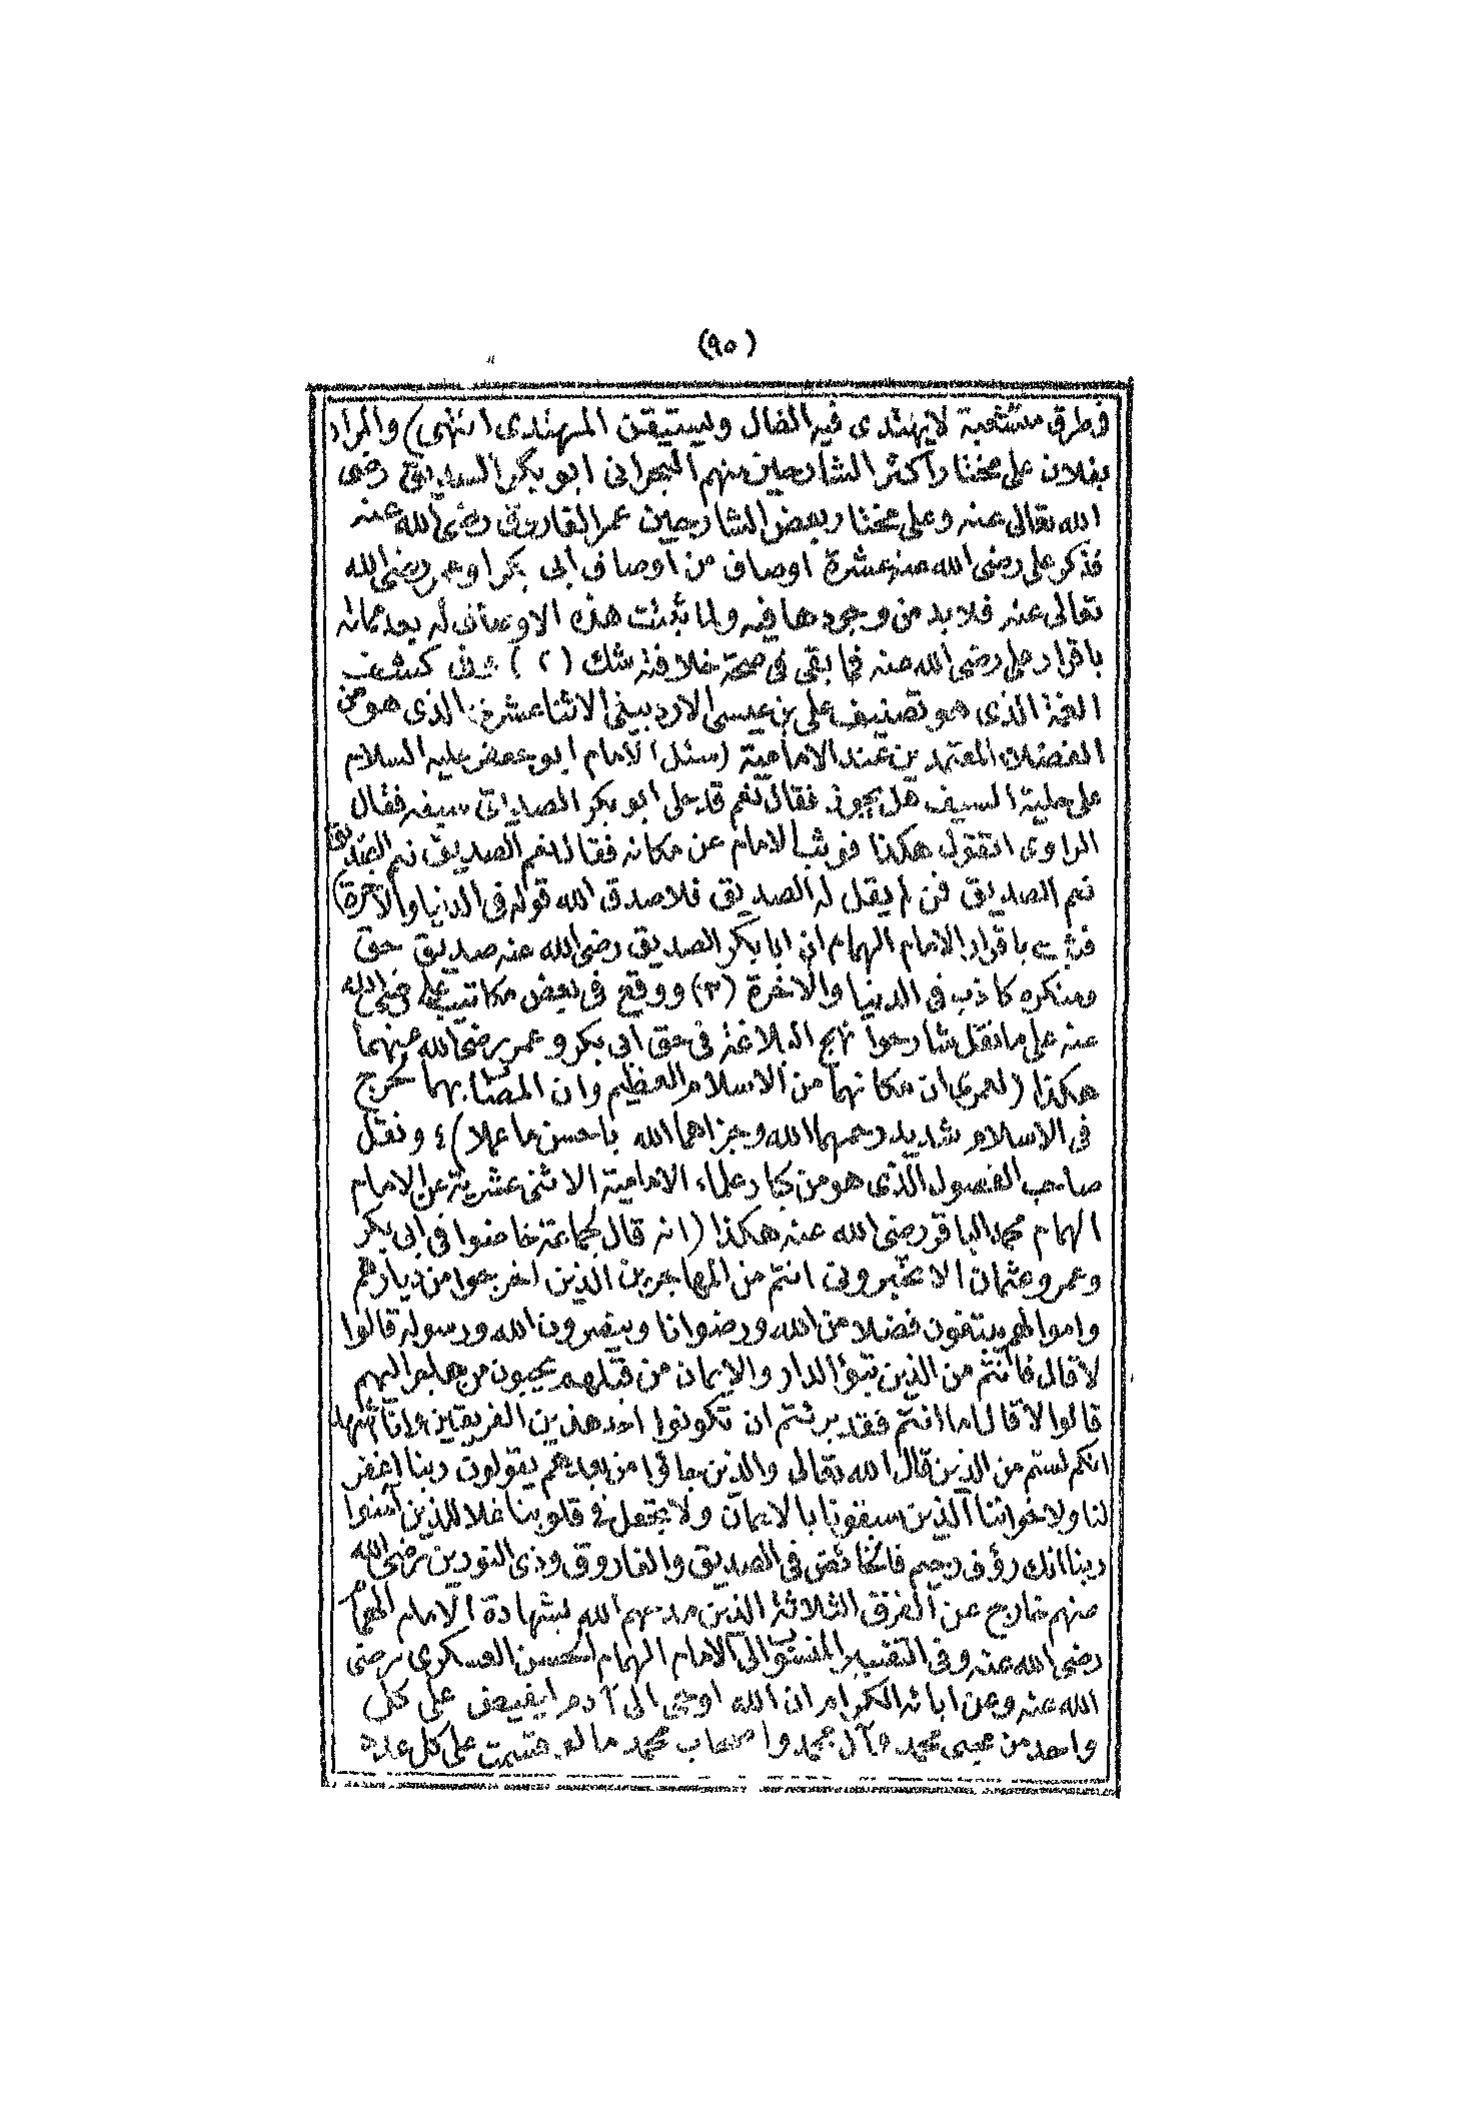 (٩٠)
فى طرق متشعبة لا يهتدى فيها الضال ويستيقن المهتدى انتهى) والمراد
بفلان على مختار أكثر الشارحين منهم البحرانى ابو بكر الصديق رضى
الله تعالى عنه وعلى مختار بعض الشارحين عمر الفاروق رضى الله عنه
فذكر على رضى الله عنه عشرة اوصاف من اوصاف ابى بكر او عمر رضى الله
تعالى عنه فلا بد من وجودها فيه ولما ثبتت هذه الاوصاف له بعد مماته
باقرار على رضى الله عنه فما بقى فى صحة خلافته شك (٢) وفى كشف
الغمة الذى هو تصنيف على بن عيسى الاردبيلى الاثنا عشرى الذى هو من
الفضلاء المعتمدين عند الامامية (سئل الامام ابو جعفر عليه السلام
على حلية السيف هل يجوز فقال نعم قد حلى ابو بكر الصديق سيفه فقال
الراوى اتقول هكذا فوثب الامام عن مكانه فقال نعم الصديق نعم الصديق
نعم الصديق فمن لم يقل له الصديق فلا صدق الله قوله فى الدنيا والآخرة)
فثبت باقرار الامام الهمام ان ابا بكر الصديق رضى الله عنه صديق حق
ومنكره كاذب فى الدنيا والآخرة (٣) ووقع فى بعض مكاتيب على رضى الله
عنه على ما نقل شارحوا نهج البلاغة فى حق ابى بكر وعمر رضى الله عنهما
هكذا (لعمرى ان مكانهما من الاسلام العظيم وان المصاب بهما لحرج
فى الاسلام شديد رحمهما الله وجزاهما الله باحسن ما عملا) ٤ ونقل
صاحب الفصول الذى هو من كبار علماء الامامية الاثنى عشرية عن الامام
الهمام محمد الباقر رضى الله عنه هكذا (انه قال لجماعة خاضوا فى ابى بكر
وعمر وعثمان الا تخبرونى انتم من المهاجرين الذين اخرجوا من ديارهم
واموالهم يبتغون فضلا من الله ورضوانا وينصرون الله ورسوله قالوا
لا قال فانتم من الذين تبوؤ الدار والايمان من قبلهم يحبون من هاجر اليهم
قالوا لا قال اما انتم فقد برئتم ان تكونوا احد هذين الفريقين وانا اشهد
انكم لستم من الذين قال الله تعالى والذين جاؤا من بعدهم يقولون ربنا اغفر
لنا ولاخواننا الذين سبقونا بالايمان ولا تجعل فى قلوبنا غلا للذين آمنوا
ربنا انك رؤف رحيم فالخائض فى الصديق والفاروق وذى النورين رضى الله
عنهم خارج عن الفرق الثلاثة الذين مدحهم الله بشهادة الامام الهمام
رضى الله عنه وفى التفسير المنسوب الى الامام الهمام الحسن العسكرى رضى
الله عنه وعن ابائه الكرام ان الله اوحى الى آدم ليفيض على كل
واحد من محبى محمد وآل محمد واصحاب محمد ما لو قسمت على كل عدد